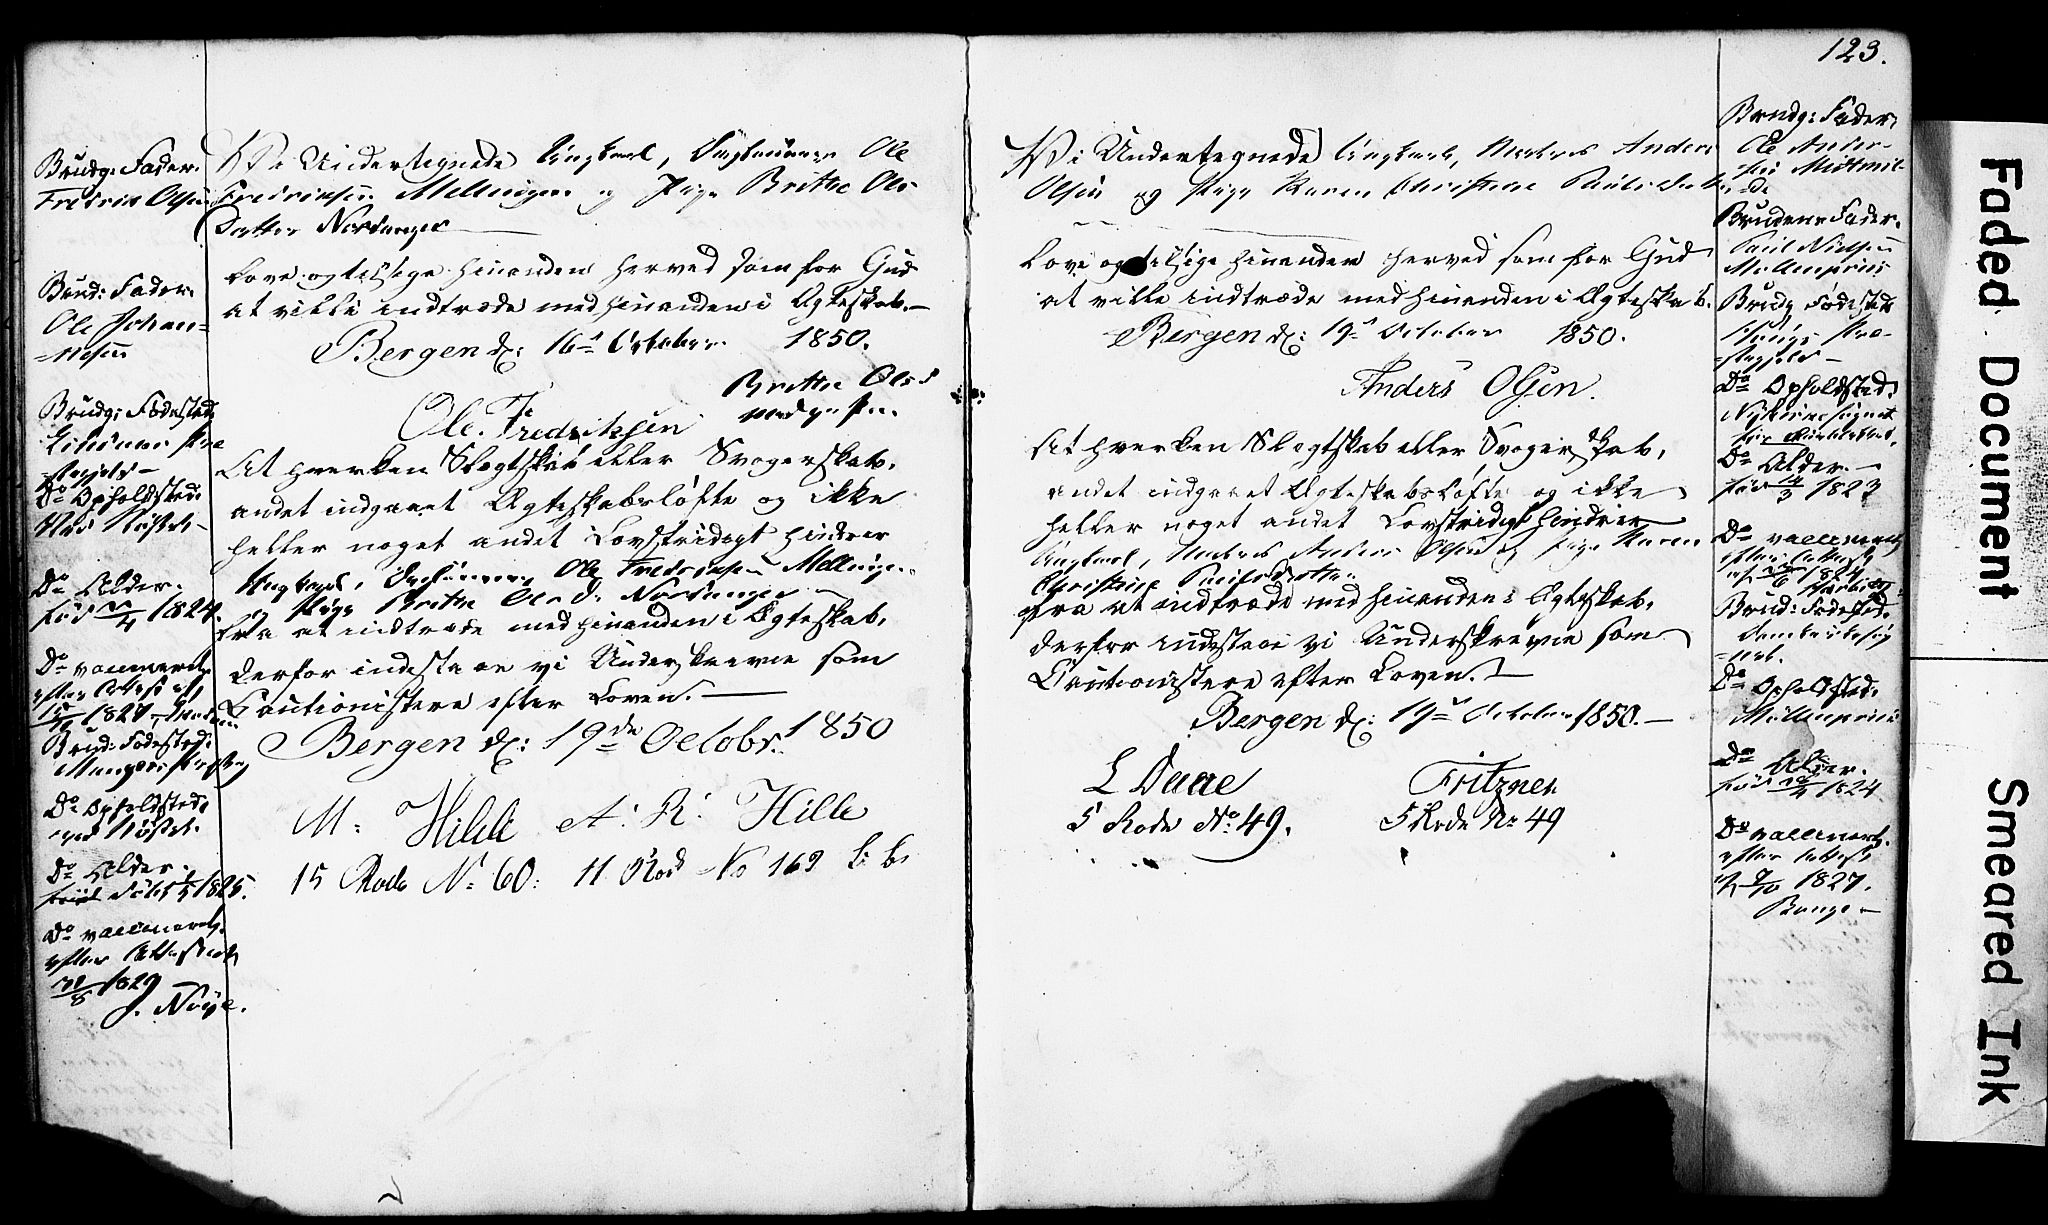 Brudg: Fader.
Fredrik Olsen
Brud: Fader.
Ole Johan=
=nesen
Brudg: Fødested.
Do Opholdsted.
Do Alder.
født 1824.
Do vaccineret
efter Attest af
1827
Brud: Fødested.
Do Opholdsted.
ved Nøstet.
Do Alder.
født 1825.
Do vaccineret.
efter Attest
1829
Vi Undertegnede Ungkarl, Ole
Fredriksen Mellingen og Pige Brithe Ols
Datter
love og tilsige hinanden herved som for Gud
at ville indtræde med hinanden i Ægteskab.—
Bergen d: 16de October 1850.
Brithe Olsd
med p: Pen.
Ole Fredriksen
At hverken Slægtskab eller Svogerskab,
andet indgaaet Ægteskabsløfte og ikke
heller noget andet Lovstridigt hindrer
Ungkarl, Ole Fredriksen Mellingen
og Pige Brithe Ols d.
fra at indtræde med hinanden i Ægteskab,
derfor indestaae vi Underskrevne som
Cautionister efter Loven.—
Bergen d: 19de Octobr. 1850
M. Hille A: R: Hille
15 Rode No 60: 11 Rode No 169
123.
Vi Undertegnede Ungkarl, Anders
Olsen og Pige Karen Christine Paulsdatter
love og tilsige hinanden herved som for Gud
at ville indtræde med hinanden i Ægteskab.
Bergen d: 19de October 1850.
Anders Olsen.
At hverken Slægtskab eller Svogerskab,
andet indgaaet Ægteskabsløfte og ikke
heller noget andet Lovstridigt hindrer
Ungkarl, Anders Olsen og Pige Karen
Christine Paulsdatter
fra at indtræde med hinanden i Ægteskab.
derfor indestaae vi Underskrevne som
Cautionister efter Loven.—
Bergen d: 19de October 1850.—
L Daae Fritzner
5 Rode No 49. 5 Rode No 49
Brudg: Fader.
Ole Ander=
Brudens Fader.
Paul Nielsen
Brudg Fødested
Do Opholdsted.
Do Alder.—
født 1823
Do vaccineret
efter Attest
Brud: Fødested.
Do Opholdsted.
Do Alder.
født 1824
Do vaccineret.
efter Attest
1827.
Faded Document
Smeared Ink